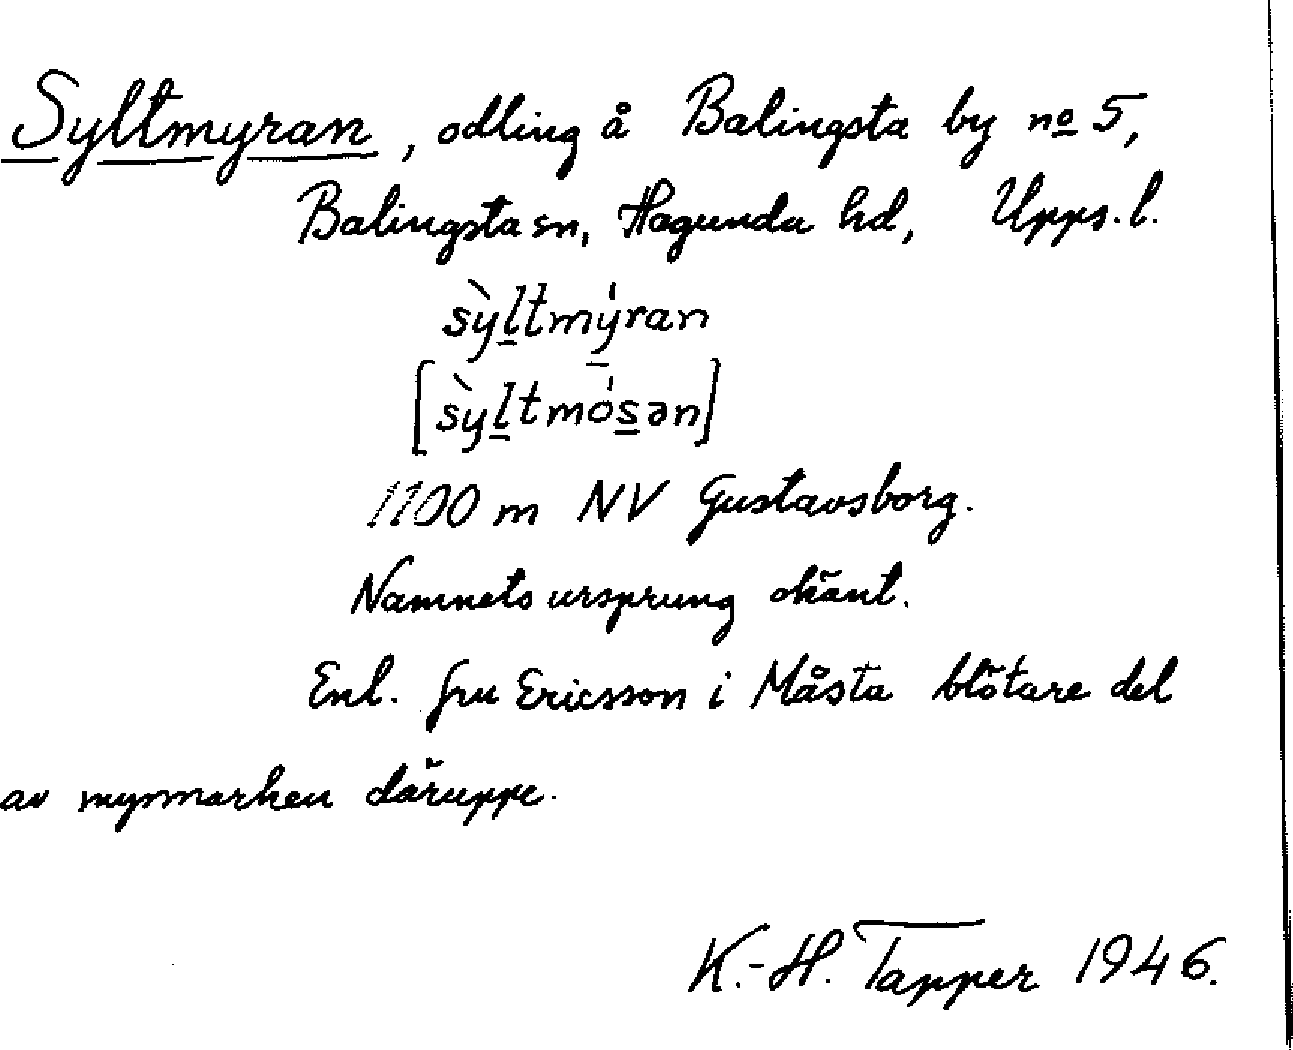 Syltmyran, odling å Balingsta by nº 5,
Balingsta sn, Hagunda hd, Upps. l.
sỳl̲tmý̲ran
[sỳl̲tmós̲ən]
1100 m NV Gustavsborg.
Namnets ursprung okänt.
Enl. fru Ericsson i Måsta blötare del
av myrmarken däruppe.
K.-H. Tapper 1946.